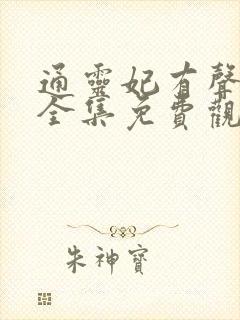 通靈妃有聲
全集免費觀
朱神寶